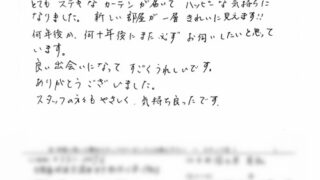 とても ステキな カーテンが届いて ハッピーな気持ちに
なりました。 新しい部屋が一層 きれいに見えます!!
何年後か、何十年後にまた必ず お伺いしたいと思って
います。
良い出会いになって すごくうれしいです。
ありがとうございました。
スタッフの方も やさしく、気持ち良かったです。